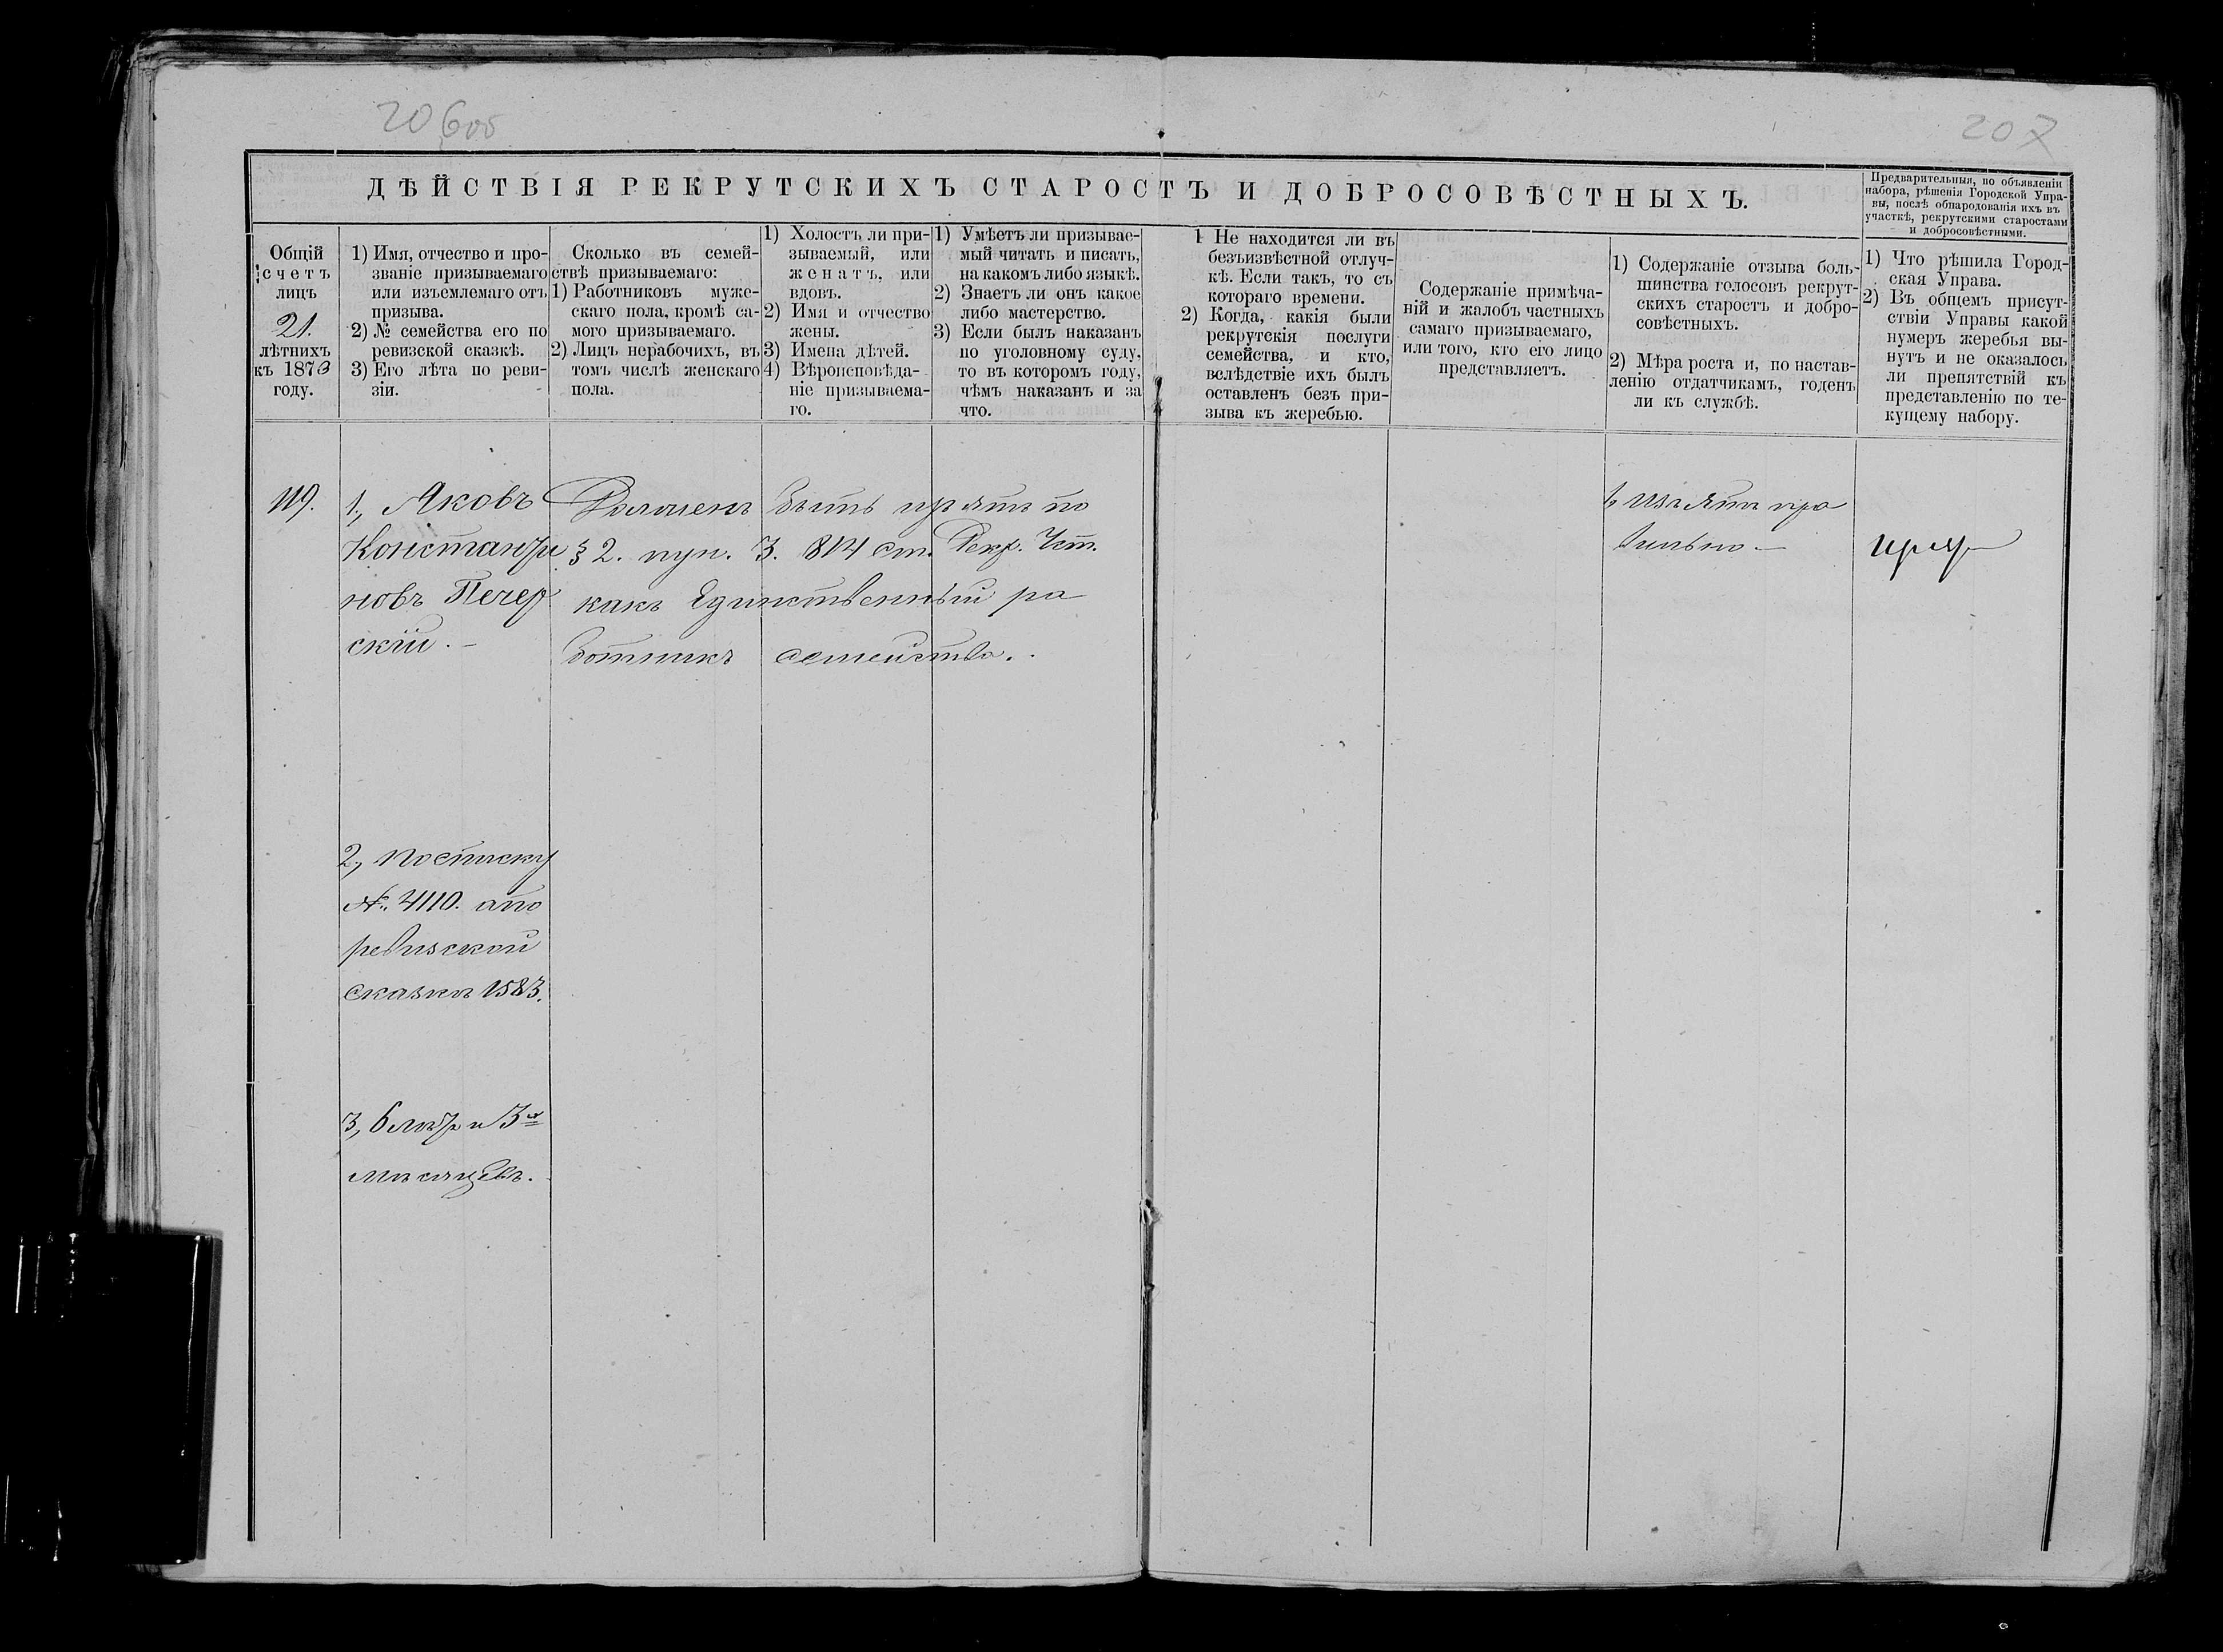 206об
207
ДѢЙСТВІЯ РЕКРУТСКИХЪ СТАРОСТЪ И ДОБРОСОВѢСТНЫХЪ.
Предварительныя, по объявленіи
набора, рѣшенія Городской Упра-
вы, послѣ обнародованія ихъ въ
участкѣ, рекрутскими старостами
и добросовѣстными.
Общій
счетъ
лицъ
21.
лѣтнихъ
къ 1873
году.
1) Имя, отчество и про-
званіе призываемаго
или изъемлемаго отъ
призыва.
2) № семейства его по
ревизской сказкѣ.
3) Его лѣта по реви-
зіи.
Сколько въ семей-
ствѣ призываемаго:
1) Работниковъ муже-
скаго пола, кромѣ са-
мого призываемаго.
2) Лицъ нерабочихъ, въ
томъ числѣ женскаго
пола.
1) Холостъ ли при-
зываемый, или
женатъ, или
вдовъ.
2) Имя и отчество
жены.
3) Имена дѣтей.
4) Вѣроисповѣда-
ніе призываема-
го.
1) Умѣетъ ли призывае-
мый читать и писать,
на какомъ либо языкѣ.
2) Знаетъ ли онъ какое
либо мастерство.
3) Если былъ наказанъ
по уголовному суду,
то въ которомъ году,
чѣмъ наказанъ и за
что.
1 Не находится ли въ
безъизвѣстной отлуч-
кѣ. Если такъ, то съ
котораго времени.
2) Когда, какія были
рекрутскія послуги
семейства, и кто,
вслѣдствіе ихъ былъ
оставленъ безъ при-
зыва къ жеребью.
Содержаніе примѣча-
ній и жалобъ частныхъ
самаго призываемаго,
или того, кто его лицо
представляетъ.
1) Содержаніе отзыва боль-
шинства голосовъ рекрут-
скихъ старостъ и добро-
совѣстныхъ.
2) Мѣра роста и, по настав-
ленію отдатчикамъ, годенъ
ли къ службѣ.
1) Что рѣшила Город-
ская Управа.
2) Въ общемъ присут-
ствіи Управы какой
нумеръ жеребья вы-
нутъ и не оказалось
ли препятствій къ
представленію по те-
кущему набору.
119.
1, Яковъ
Константи
новъ Печер
скій. —
2, по списку
№ 4110. а по
ревизской
сказкѣ 1583.
3, 6 лѣтъ и 3х
мѣсяцевъ.
Долженъ быть изъятъ по
§ 2. пун. 3. 814 ст. Рекр. Уст.
какъ Единственный ра
ботникъ семейства.
1, Изъятъ пра
вильно —